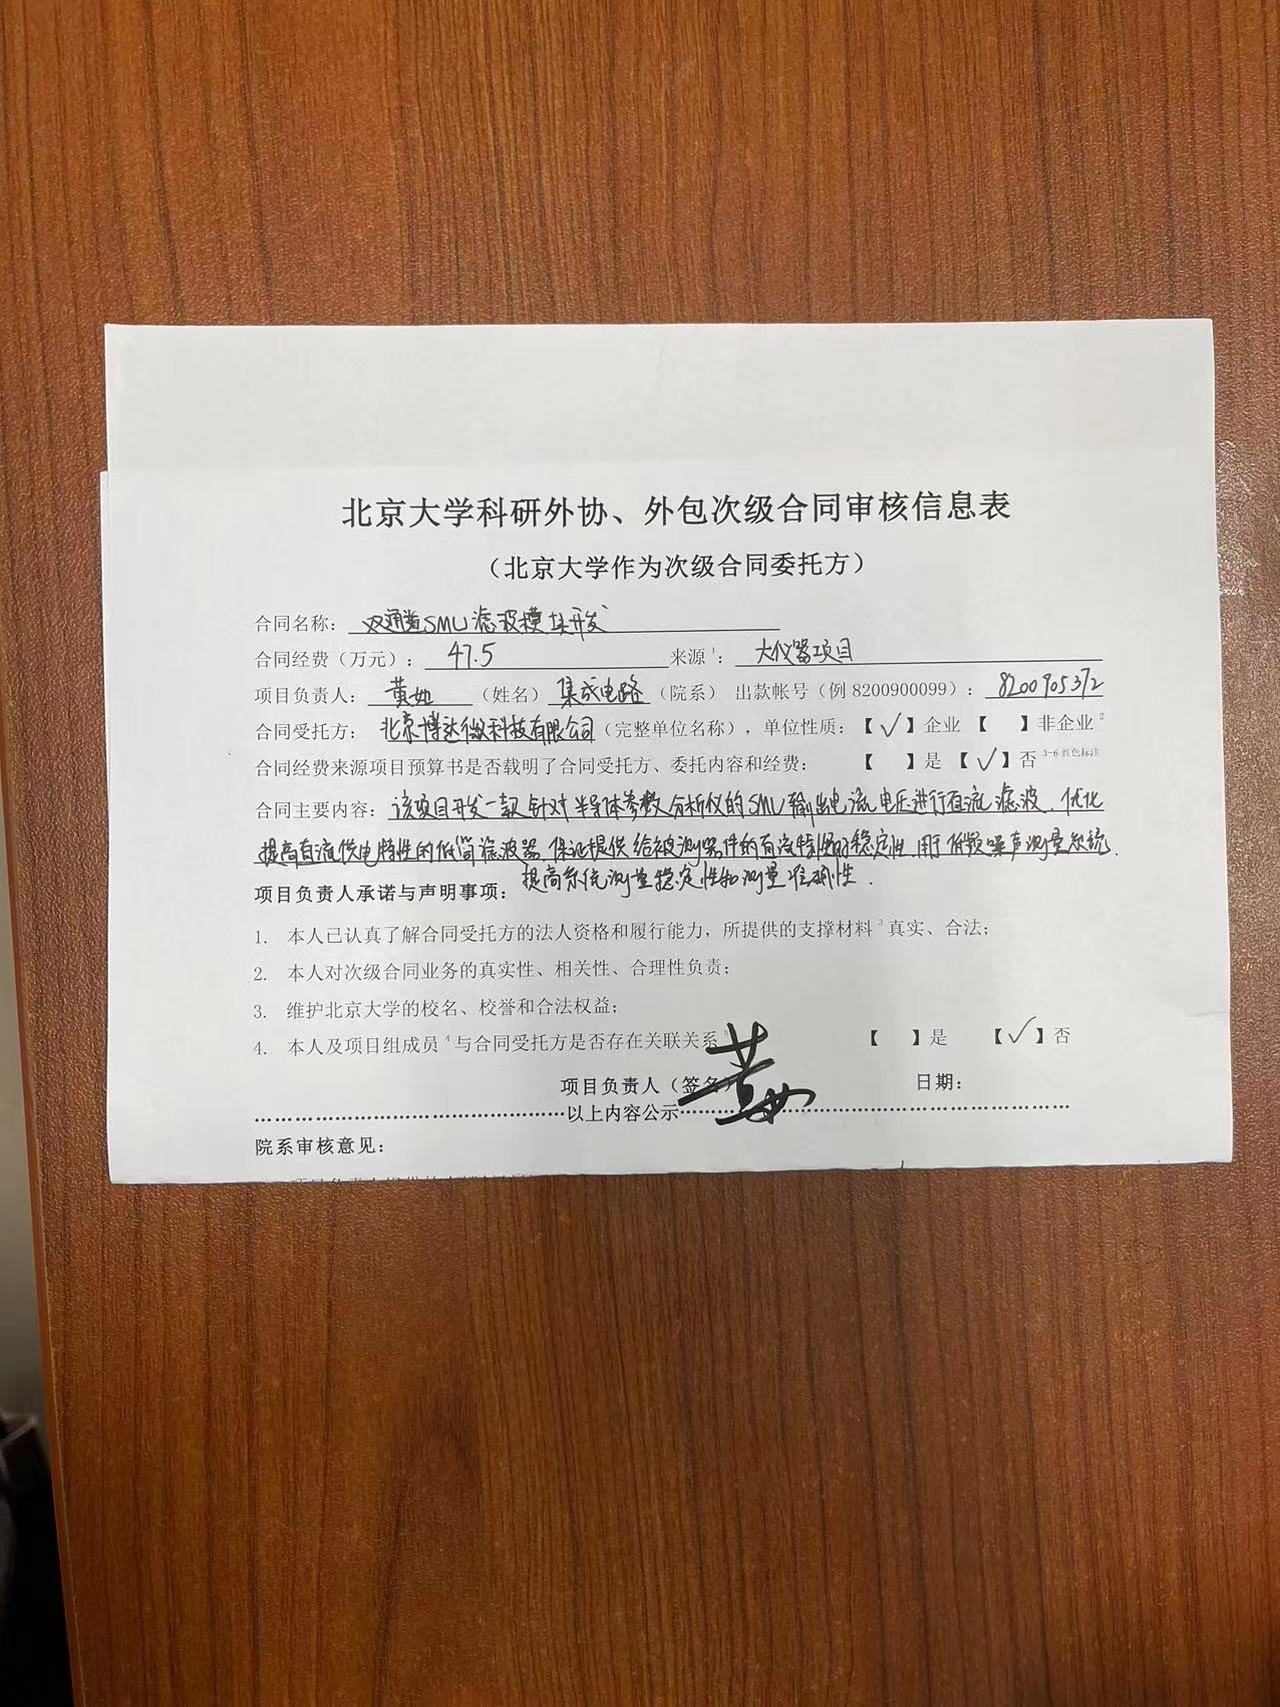 北京大学科研外协、外包次级合同审核信息表
（北京大学作为次级合同委托方）
合同名称：双通道SMU滤波模块开发
合同经费（万元）：47.5 来源1：大仪器项目
项目负责人：黄如（姓名）集成电路（院系）出款帐号（例8200900099）：8200905372
合同受托方：北京博达微科技有限公司（完整单位名称），单位性质：【√】企业【 】非企业2
合同经费来源项目预算书是否载明了合同受托方、委托内容和经费：【 】是【√】否 3-6红色标注
合同主要内容：该项目开发一款针对半导体参数分析仪的SMU输出电流电压进行直流滤波，优化
提高直流供电特性的低筒滤波器，保证提供给被测器件的直流特性的稳定性，用于低频噪声测量系统，
提高系统测量稳定性和测量准确性．
项目负责人承诺与声明事项：
1. 本人已认真了解合同受托方的法人资格和履行能力，所提供的支撑材料3真实、合法；
2. 本人对次级合同业务的真实性、相关性、合理性负责；
3. 维护北京大学的校名、校誉和合法权益；
4. 本人及项目组成员4与合同受托方是否存在关联关系5 【 】是 【√】否
项目负责人（签名）黄如 日期：
……………………以上内容公示……………………
院系审核意见：